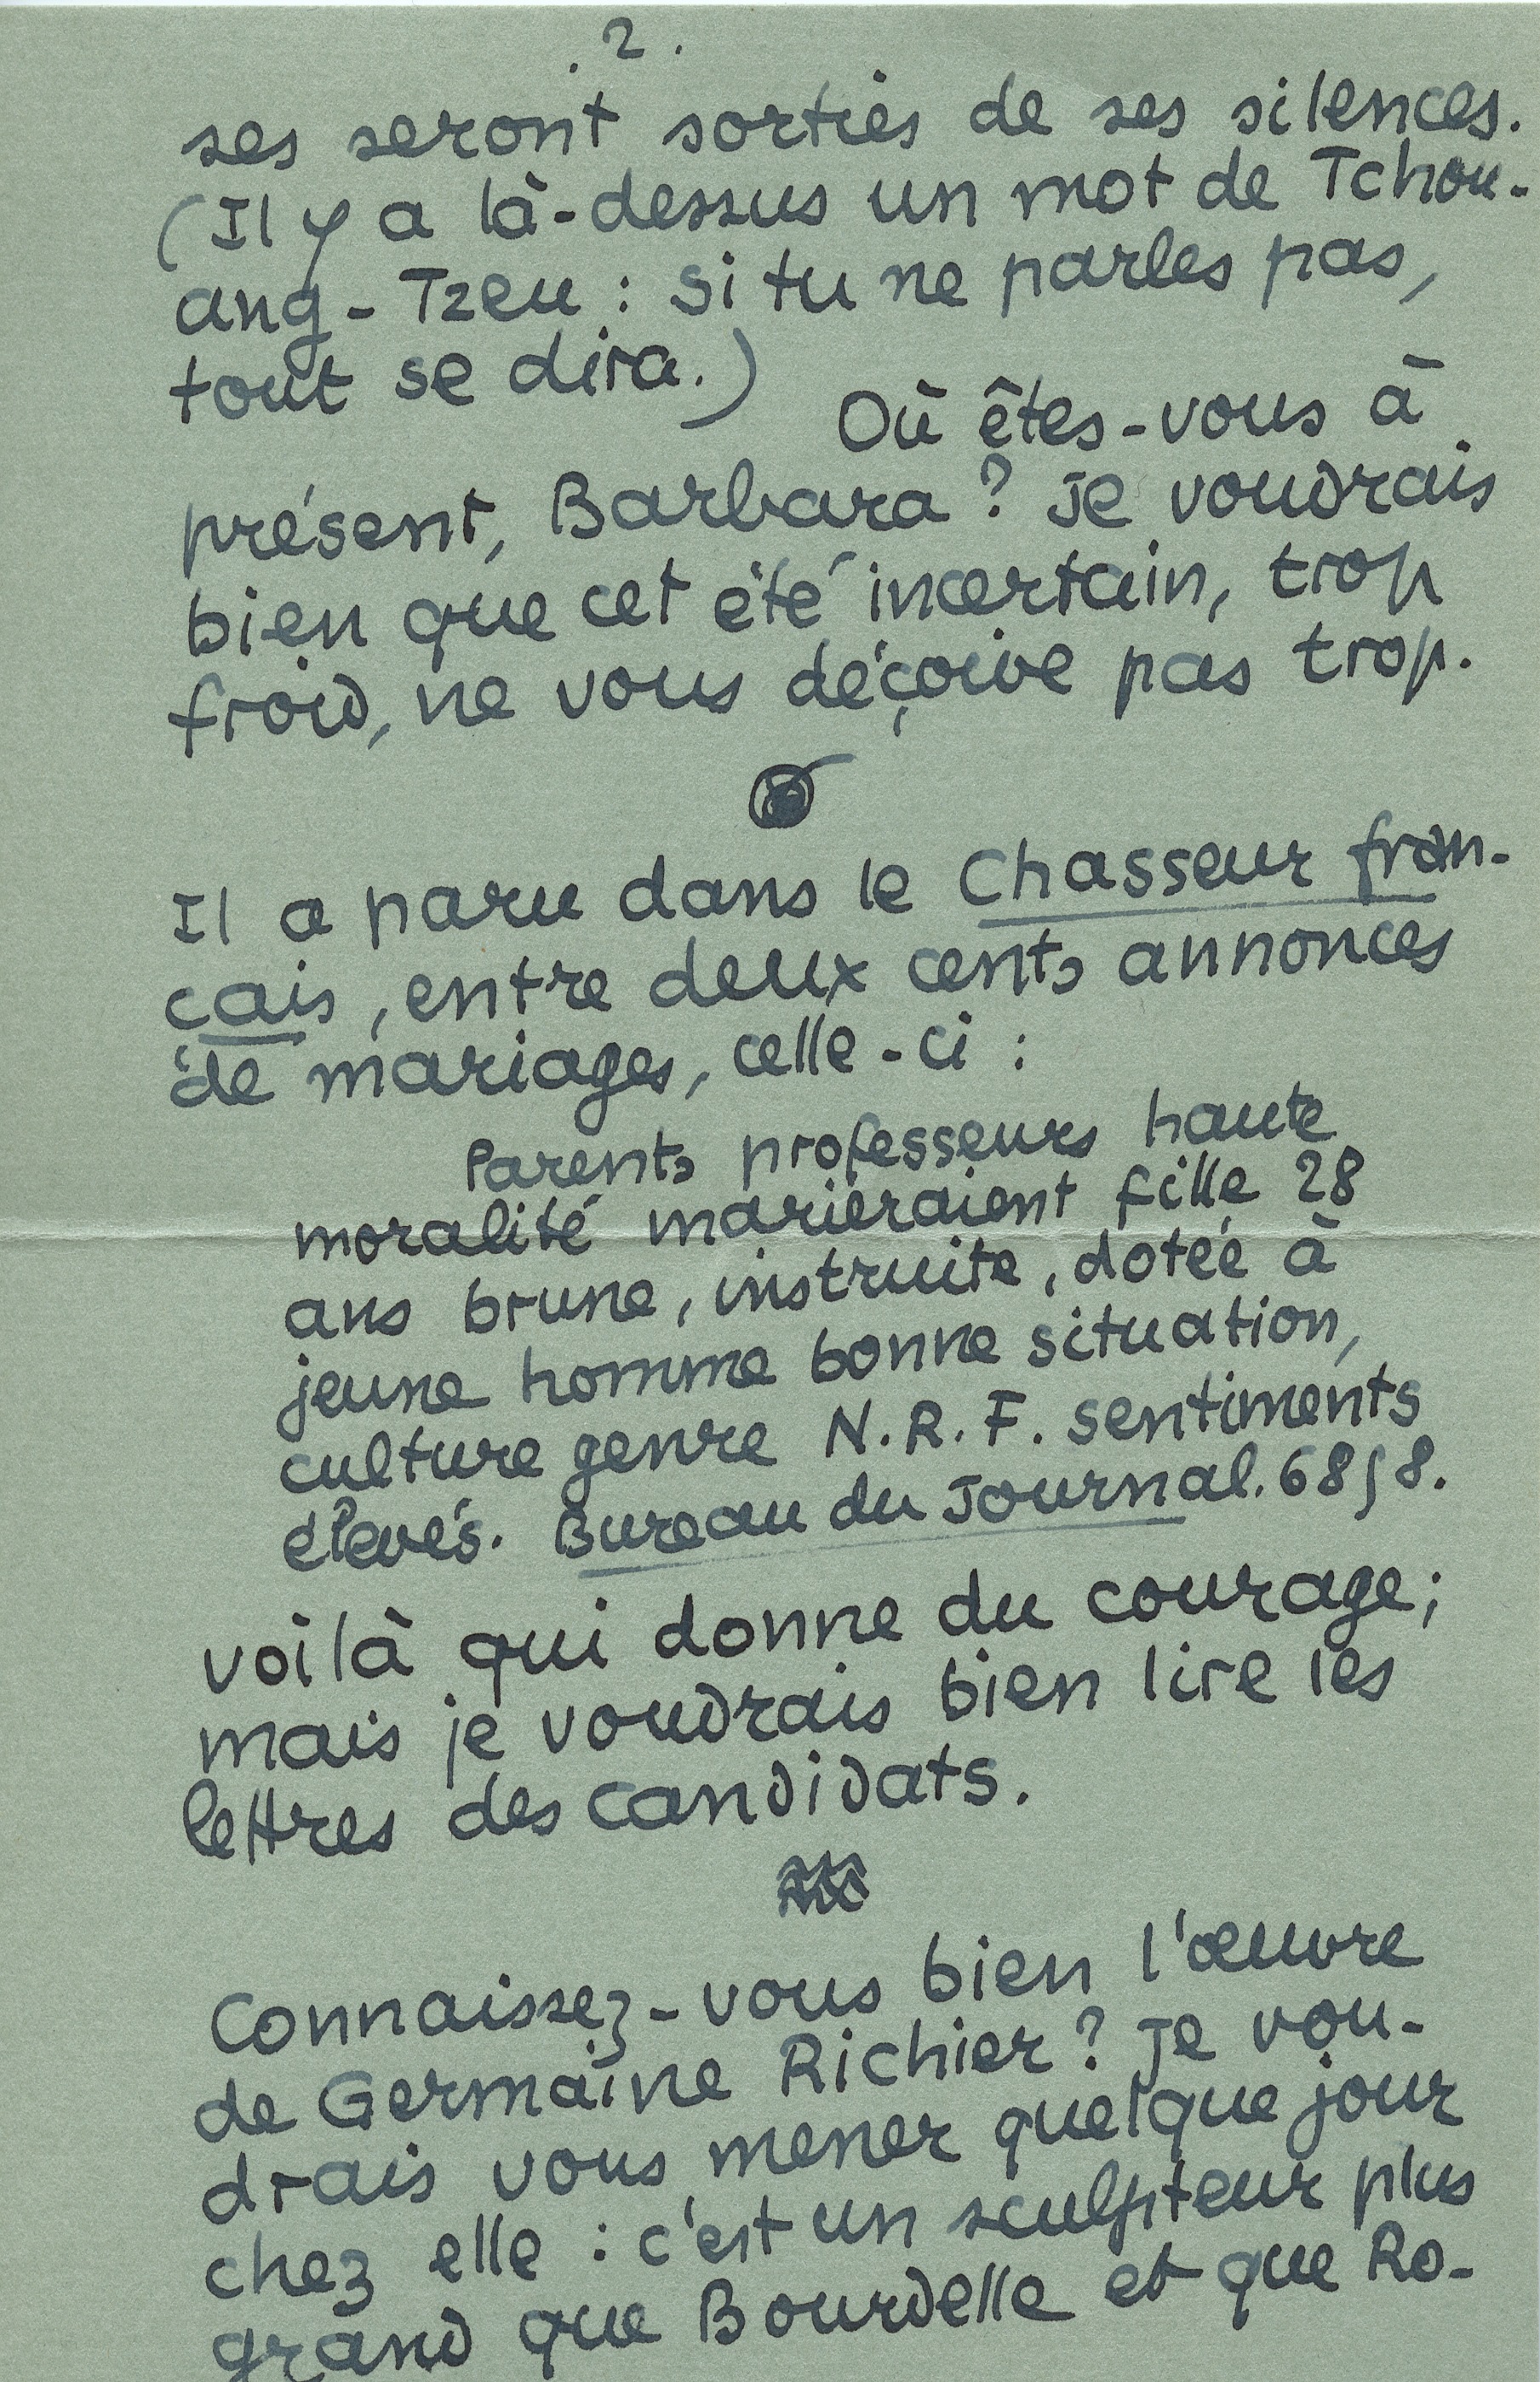 . 2 .
ses seront sorties de ses silences.
(Il y a là-dessus un mot de Tchou-
ang-Tzeu : si tu ne parles pas,
tout se dira.)
Où êtes-vous à
présent, Barbara ? Je voudrais
bien que cet été incertain, trop
froid, ne vous déçoive pas trop.
Il a paru dans le Chasseur fran-
çais, entre deux cents annonces
de mariages, celle-ci :
Parents professeurs haute
moralité marieraient fille 28
ans brune, instruite, dotée à
jeune homme bonne situation,
culture genre N.R.F. sentiments
élevés. Bureau du Journal. 6858.
voilà qui donne du courage ;
mais je voudrais bien lire les
lettres des candidats.
Connaissez-vous bien l'œuvre
de Germaine Richier ? Je vou-
drais vous mener quelque jour
chez elle : c'est un sculpteur plus
grand que Bourdelle et que Ro-